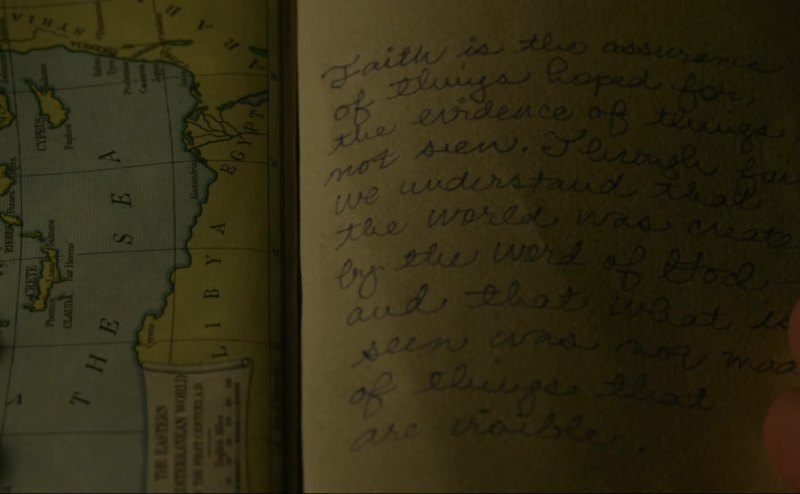 SYRIA
CYPRUS
Paphos
EGYPT
Alexandria
RHODES
CRETE
CLAUDA
Cyrene
LIBYA
THE
SEA
THE EASTERN
MEDITERRANEAN WORLD
THE FIRST CENTURY A.D.
English Miles
Faith is the assurence
of things hoped for,
the evidence of things
not seen. Through fai
we understand that
the world was create
by the word of God –
and that what is
seen was not mad
of things that
are visible.